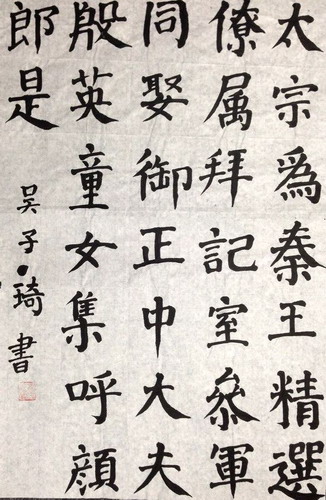 太宗爲秦王精選
僚属拜記室叅軍
同娶御正中大夫
殷英童女集呼顔
郎是
吴子琦書